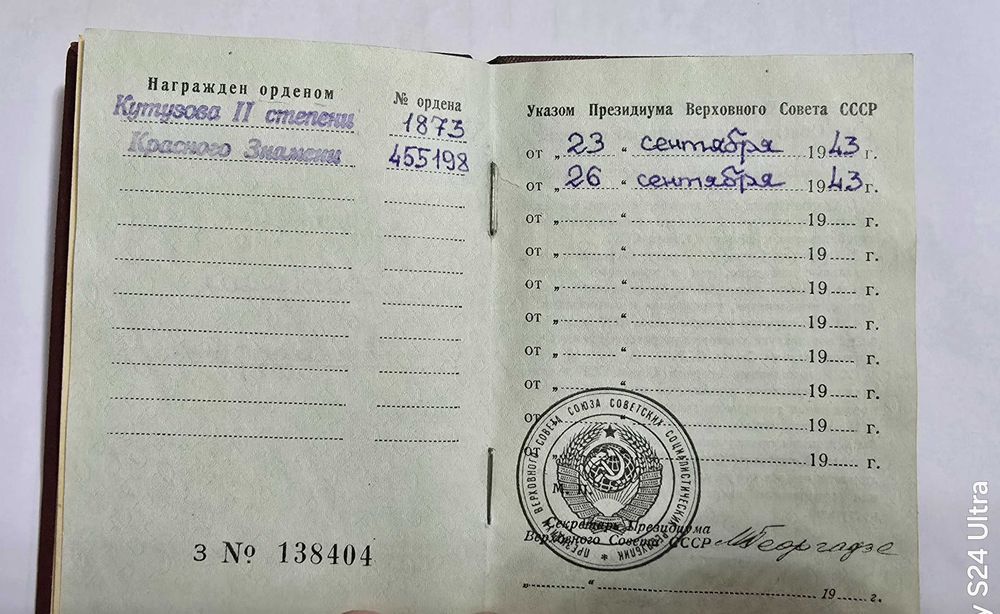 Награжден орденом
№ ордена
Кутузова II степени
1873
Красного Знамени
455198
З № 138404
Указом Президиума Верховного Совета СССР
от „ 23 “ сентября 1943 г.
от „ 26 “ сентября 1943 г.
от „ “ 19 г.
от „ “ 19 г.
от „ “ 19 г.
от „ “ 19 г.
от „ “ 19 г.
от „ “ 19 г.
от „ “ 19 г.
от „ 19 г.
ПРЕЗИДИУМ ВЕРХОВНОГО СОВЕТА СОЮЗА СОВЕТСКИХ СОЦИАЛИСТИЧЕСКИХ РЕСПУБЛИК *
М. П.
Секретарь Президиума
Верховного Совета СССР МГеоргадзе
„ “ 19 г.
y S24 Ultra